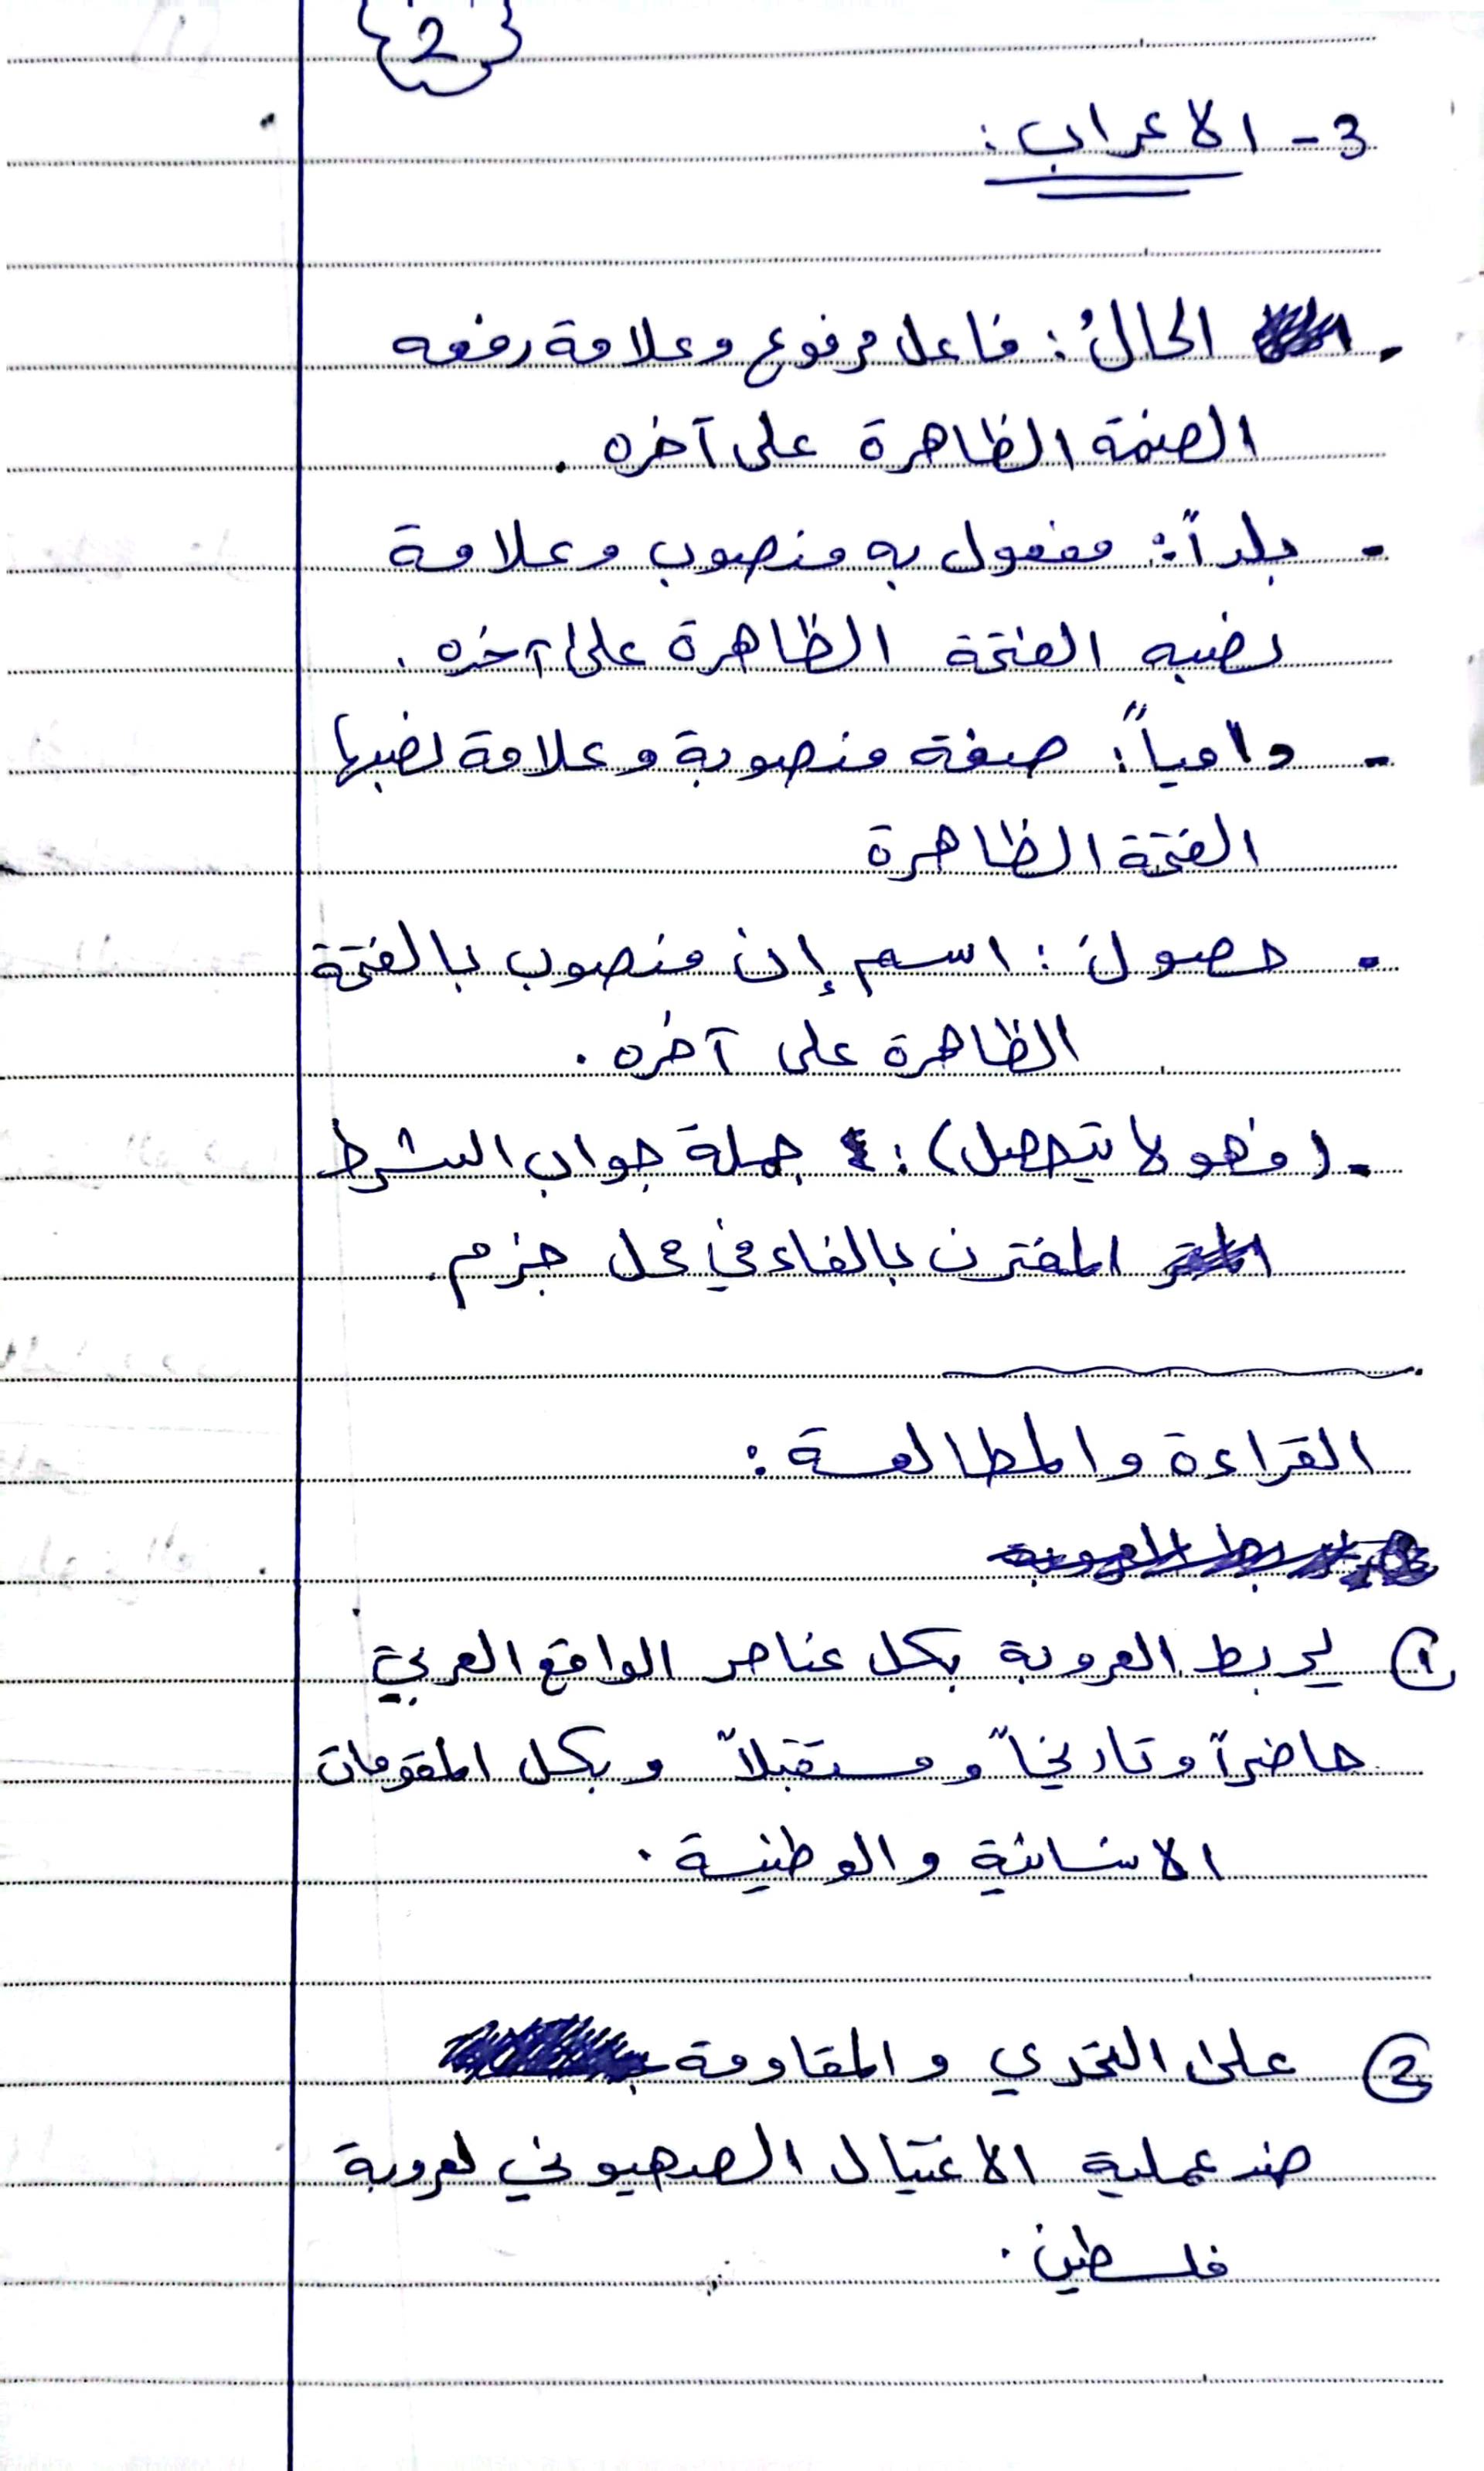 2
3- الاعراب:
- الحالُ: فاعل مرفوع وعلامة رفعه
الضمة الظاهرة على آخره.
- بلداً: مفعول به منصوب وعلامة
نصبه الفتحة الظاهرة على آخره.
- دامياً: صفة منصوبة وعلامة نصبها
الفتحة الظاهرة
- حصولَ: اسم إن منصوب بالفتحة
الظاهرة على آخره.
- (فهو لا يتحصل): جملة جواب الشرط
المقترن بالفاء في محل جزم.
القراءة والمطالعة:
① ليربط العروبة بكل عناصر الواقع العربي
حاضراً وتاريخاً ومستقبلاً وبكل المقومات
الانسانية والوطنية.
② على التحدي والمقاومة
ضد عملية الاغتيال الصهيوني لعروبة
فلسطين.